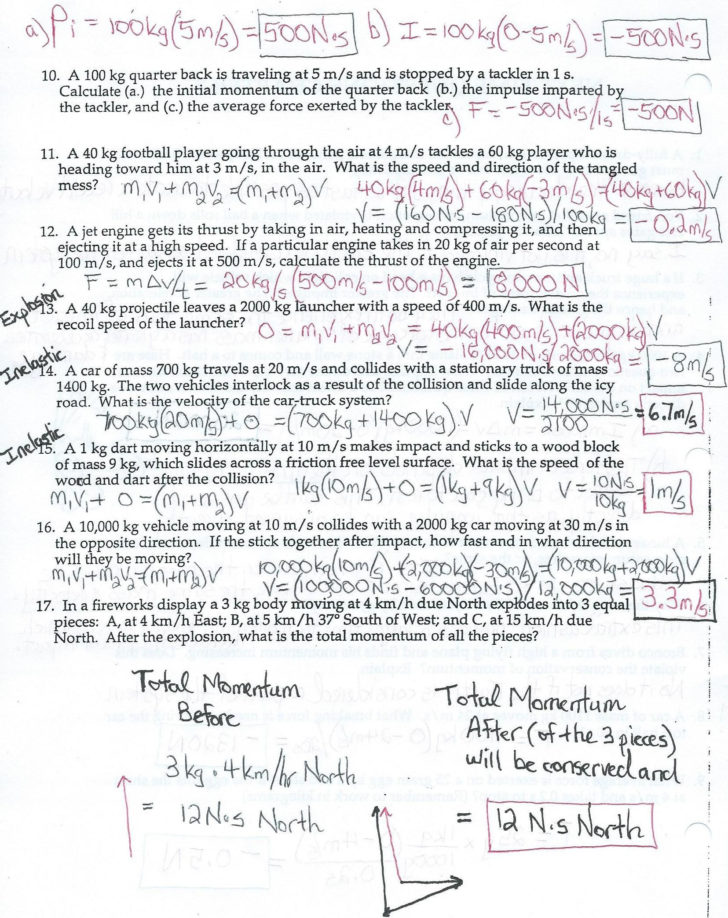 a) Pi = 100kg(5m/s) = 500N·s b) I = 100kg(0-5m/s) = -500N·s
10. A 100 kg quarter back is traveling at 5 m/s and is stopped by a tackler in 1 s.
Calculate (a.) the initial momentum of the quarter back (b.) the impulse imparted by
the tackler, and (c.) the average force exerted by the tackler. c) F = -500N·s/1s = -500N
11. A 40 kg football player going through the air at 4 m/s tackles a 60 kg player who is
heading toward him at 3 m/s, in the air. What is the speed and direction of the tangled
mess? m₁V₁ + m₂V₂ = (m₁+m₂)V 40kg(4m/s) + 60kg(-3m/s) = (40kg+60kg)V
V = (160N·s - 180N·s)/100kg = -0.2m/s
12. A jet engine gets its thrust by taking in air, heating and compressing it, and then
ejecting it at a high speed. If a particular engine takes in 20 kg of air per second at
100 m/s, and ejects it at 500 m/s, calculate the thrust of the engine.
F = mΔv/t = 20kg/s(500m/s-100m/s) = 8,000N
Explosion
13. A 40 kg projectile leaves a 2000 kg launcher with a speed of 400 m/s. What is the
recoil speed of the launcher? 0 = m₁V₁ + m₂V₂ = 40kg(400m/s)+(2000kg)V
V = -16,000N·s/2000kg = -8m/s
Inelastic
14. A car of mass 700 kg travels at 20 m/s and collides with a stationary truck of mass
1400 kg. The two vehicles interlock as a result of the collision and slide along the icy
road. What is the velocity of the car-truck system?
700kg(20m/s)+0 = (700kg+1400kg)V V = 14,000N·s/2100 = 6.7m/s
Inelastic
15. A 1 kg dart moving horizontally at 10 m/s makes impact and sticks to a wood block
of mass 9 kg, which slides across a friction free level surface. What is the speed of the
wood and dart after the collision? 1kg(10m/s)+0 = (1kg+9kg)V V = 10N·s/10kg = 1m/s
m₁V₁ + 0 = (m₁+m₂)V
16. A 10,000 kg vehicle moving at 10 m/s collides with a 2000 kg car moving at 30 m/s in
the opposite direction. If the stick together after impact, how fast and in what direction
will they be moving? 10,000kg(10m/s)+(2,000kg)(-30m/s) = (10,000kg+2000kg)V
m₁V₁+m₂V₂=(m₁+m₂)V V = (100,000N·s - 60000N·s)/12,000kg = 3.3m/s
17. In a fireworks display a 3 kg body moving at 4 km/h due North explodes into 3 equal
pieces: A, at 4 km/h East; B, at 5 km/h 37° South of West; and C, at 15 km/h due
North. After the explosion, what is the total momentum of all the pieces?
Total Momentum
Before
3kg · 4km/hr North
= 12N·s North
Total Momentum
After (of the 3 pieces)
will be conserved and
= 12 N·s North